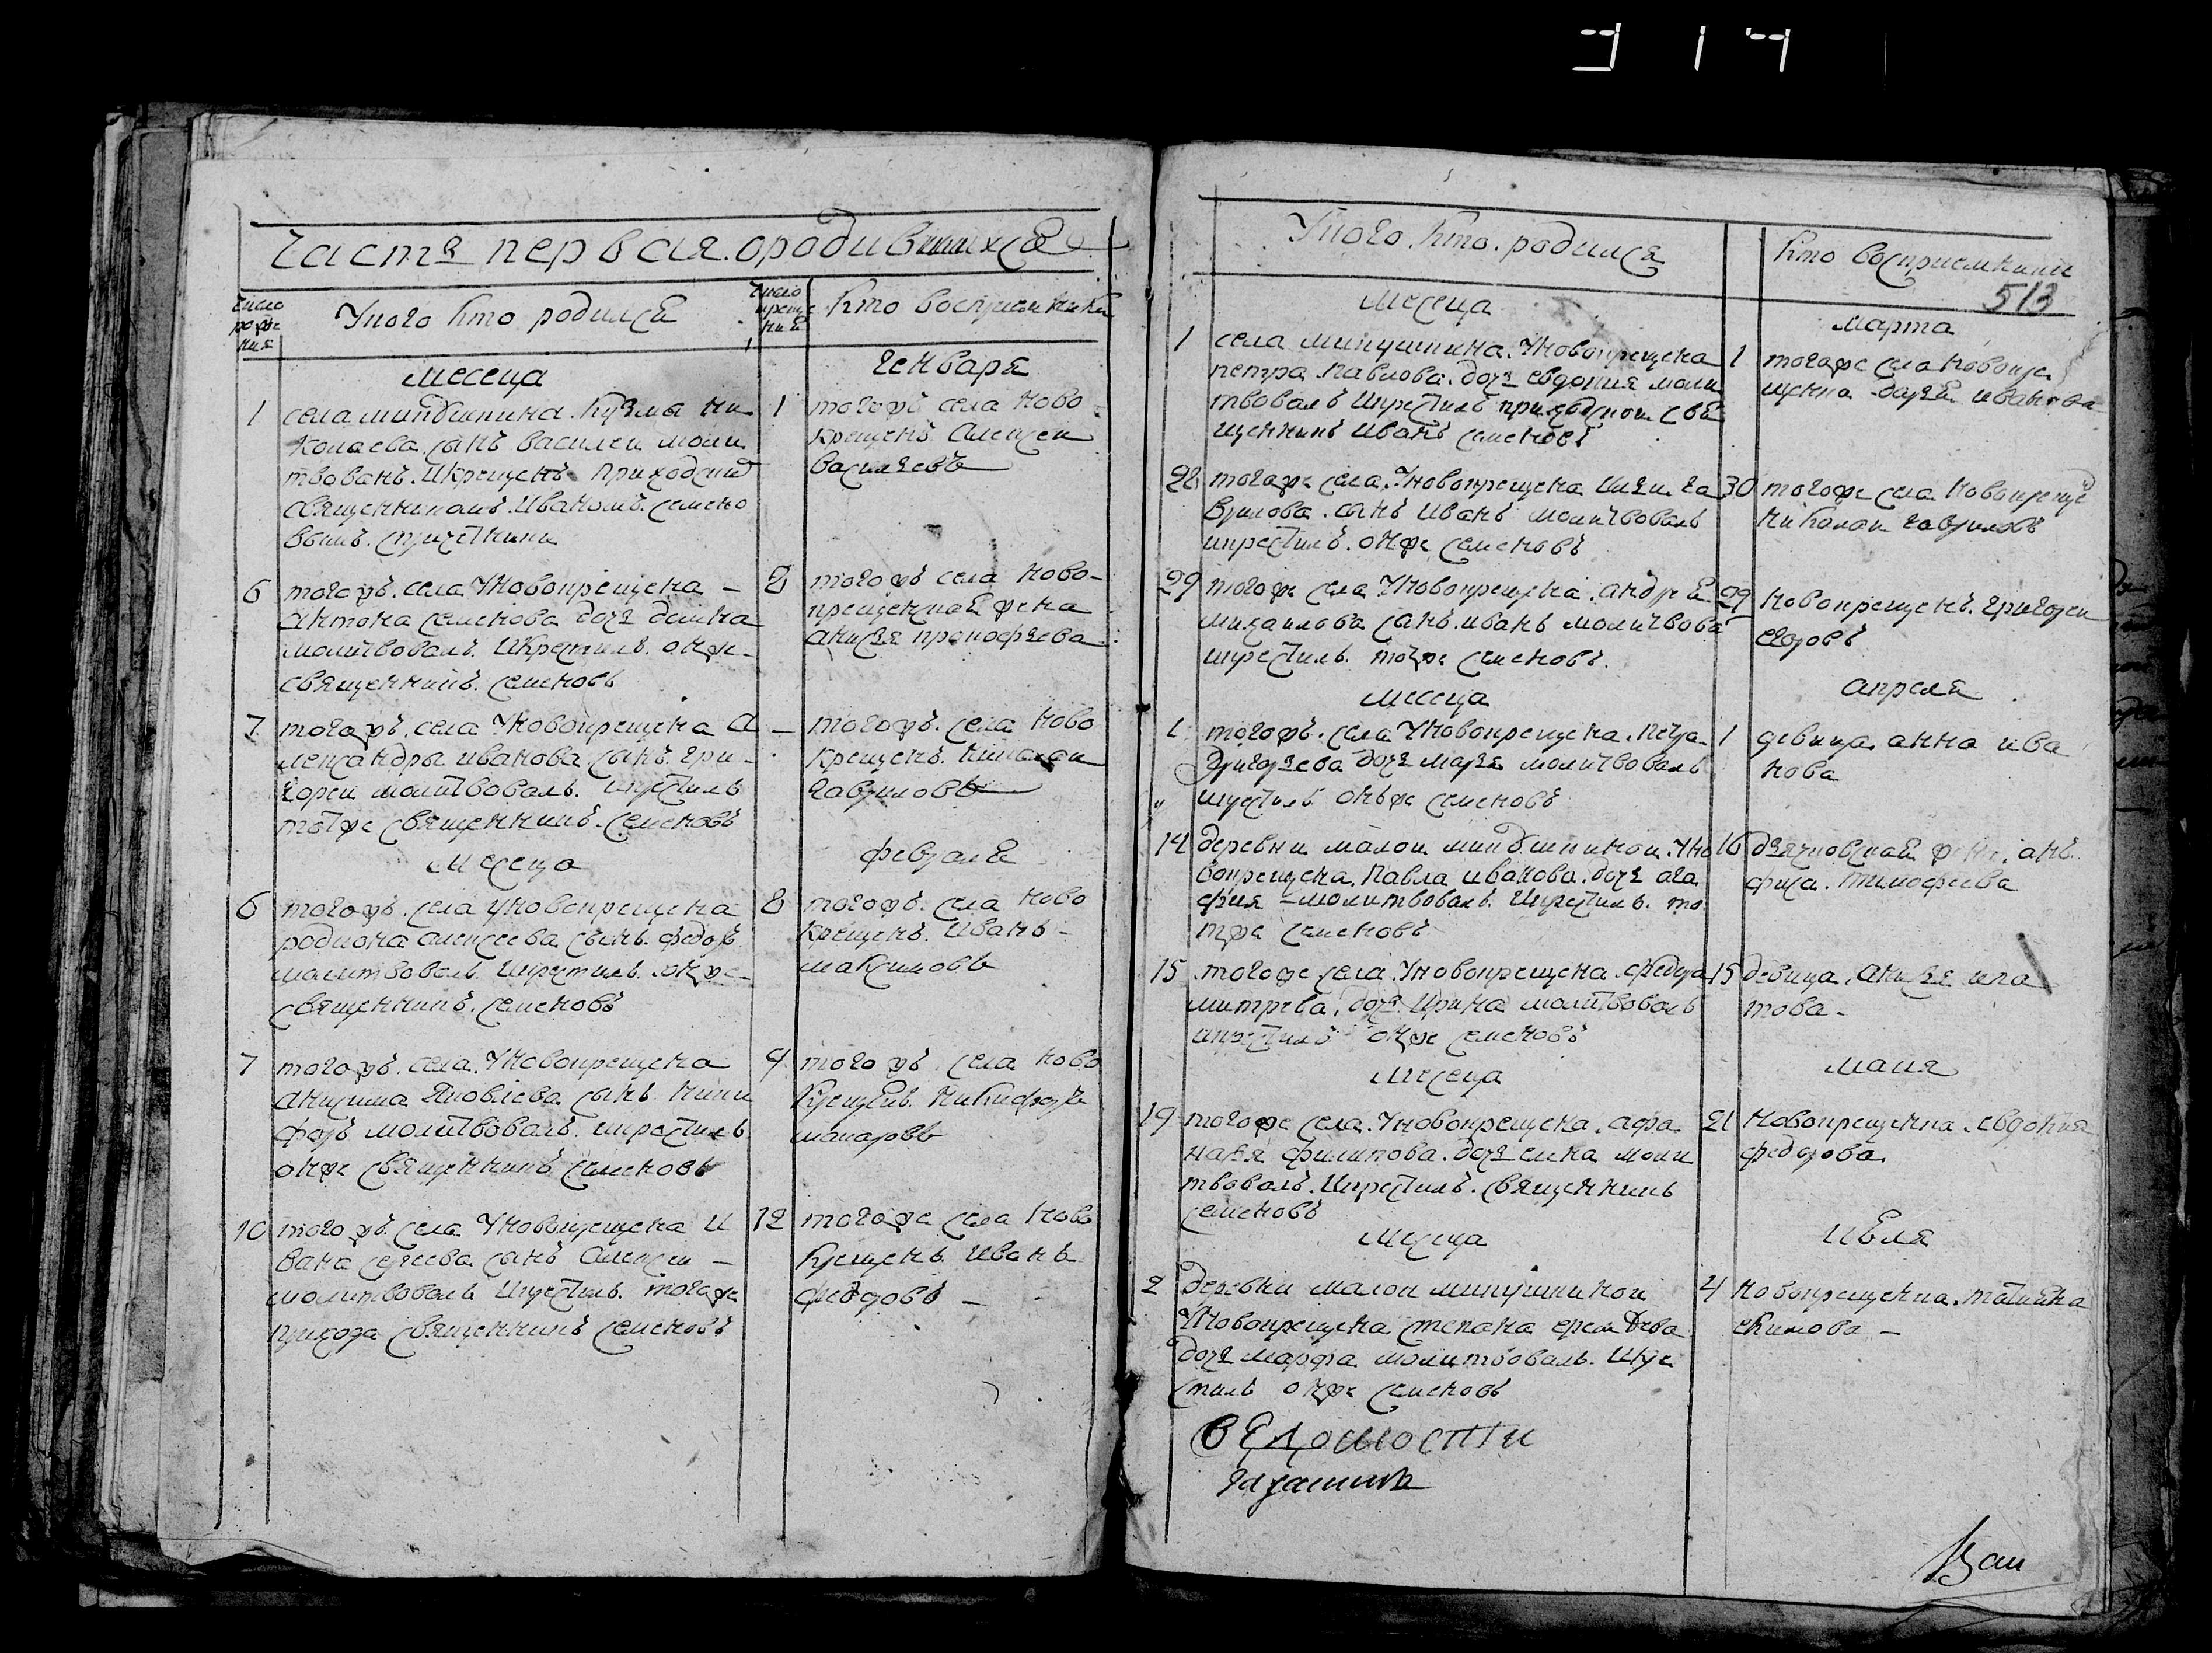 часть первая о родившихся
число рожде ния
У кого кто родился
число креще ния
кто восприемники
месеца
генваря
1 села миндюшкина кузмы ни
колаева сынъ василеи моли
твованъ и крещенъ приходским
священникомъ Иваномъ семено
вымъ с причетники
1 тогожъ села ново
крещенъ Алексеи
васильевъ
6 тогожъ села у новокрещена
антона семенова дочь домна
молитвовалъ и крестилъ онже
священникъ семеновъ
8 тогожъ села ново
крещенная жена
анисья прокофьева
7 тогожъ села у новокрещена а
лександры иванова сынъ гри
гореи молитвовалъ и крестилъ
тотже священникъ семеновъ
тогожъ села ново
крещенъ николаи
гавриловъ
месеца
февраля
6 тогожъ села у новокрещена
родиона алексеева сынъ федоръ
молитвовалъ и крестилъ онже
священникъ семеновъ
8 тогожъ села ново
крещенъ иванъ
максимовъ
7 тогожъ села у новокрещена
анисима яковлева сынъ ники
форъ молитвовалъ и крестилъ
онже священникъ семеновъ
9 тогожъ села ново
крещенъ никифоръ
макаровъ
10 тогожъ села у новокрещена и
вана сергеева сынъ алексеи
молитвовалъ и крестилъ тогоже
прихода священникъ семеновъ
12 тогоже села ново
крещенъ иванъ
федоровъ
У кого кто родился
кто восприемники
513
месеца
марта
1 села миндюшкина у новокрещена
петра павлова дочь евдокия моли
твовалъ и крестилъ приходской свя
щенникъ иванъ семеновъ
1 тогоже села новокре
щенка дарья иванова
28 тогоже села у новокрещена га
врилова сынъ иванъ молитвовалъ
и крестилъ онже семеновъ
30 тогоже села новокреще
николаи гавриловъ
29 тогоже села у новокрещена андрея
михаилова сынъ иванъ молитвова
и крестилъ тоже семеновъ
29 новокрещенъ григореи
егоровъ
месеца
апреля
1 тогожъ села у новокрещена петра
григорьева дочь марья молитвовалъ
и крестилъ онъже семеновъ
1 девица анна ива
нова
14 деревни малои миндюшкинои у но
вокрещена павла иванова дочь ага
фия молитвовалъ и крестилъ то
тже семеновъ
16 дьячковская жена анъ
фиса тимофеева
15 тогоже села у новокрещена федора
митрева дочь ирина молитвовалъ
и крестилъ онже семеновъ
15 девица анисья ипа
това
месеца
маия
19 тогоже села у новокрещена афа
насья филипова дочь елена моли
твовалъ и крестилъ священникъ
семеновъ
21 новокрещенка евдокия
федорова
месеца
июля
2 деревни малои миндюшкинои
у новокрещена степана
дочь марфа молитвовалъ и кре
стилъ онже семеновъ
4 новокрещенка татияна
екимова
ведомости